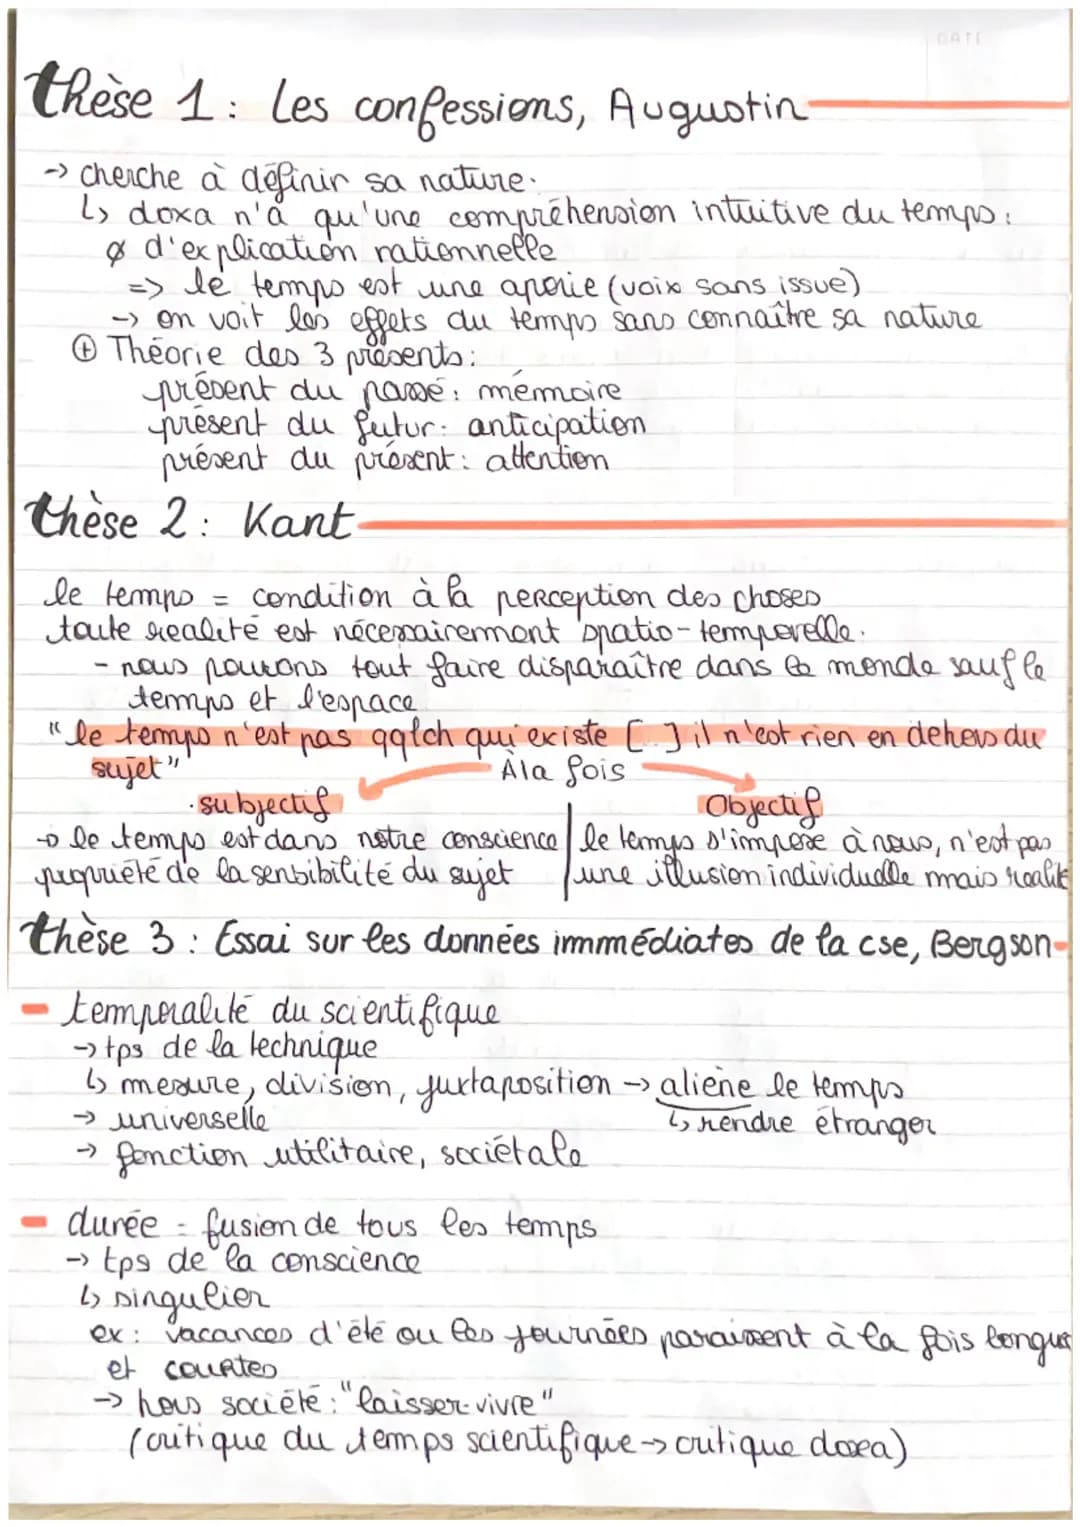 DATE
thèse 1 : Les confessions, Augustin
-> cherche à définir sa nature.
↳ doxa n'a qu'une compréhension intuitive du temps :
ø d'explication rationnelle
=> le temps est une aporie (voix sans issue)
-> on voit les effets du temps sans connaître sa nature
⊕ Théorie des 3 présents :
présent du passé : mémoire
présent du futur : anticipation
présent du présent : attention
thèse 2 : Kant
le temps = condition à la perception des choses
toute realité est nécessairement spatio-temporelle.
- nous pouvons tout faire disparaître dans le monde sauf le
temps et l'espace
"le temps n'est pas qqlch qui existe [..] il n'est rien en dehors du
sujet"
À la fois
. subjectif
Objectif
-> le temps est dans notre conscience
propriété de la sensibilité du sujet
le temps s'impose à nous, n'est pas
une illusion individuelle mais realité
thèse 3 : Essai sur les données immédiates de la cse, Bergson
- temporalité du scientifique
-> tps de la technique
↳ mesure, division, juxtaposition -> aliène le temps
↳ rendre étranger
-> universelle
-> fonction utilitaire, sociétale
- durée = fusion de tous les temps
-> tps de la conscience
↳ singulier
ex : vacances d'été où les journées paraissent à la fois longues
et courtes
-> hors société : "laisser-vivre"
(critique du temps scientifique -> critique doxa)